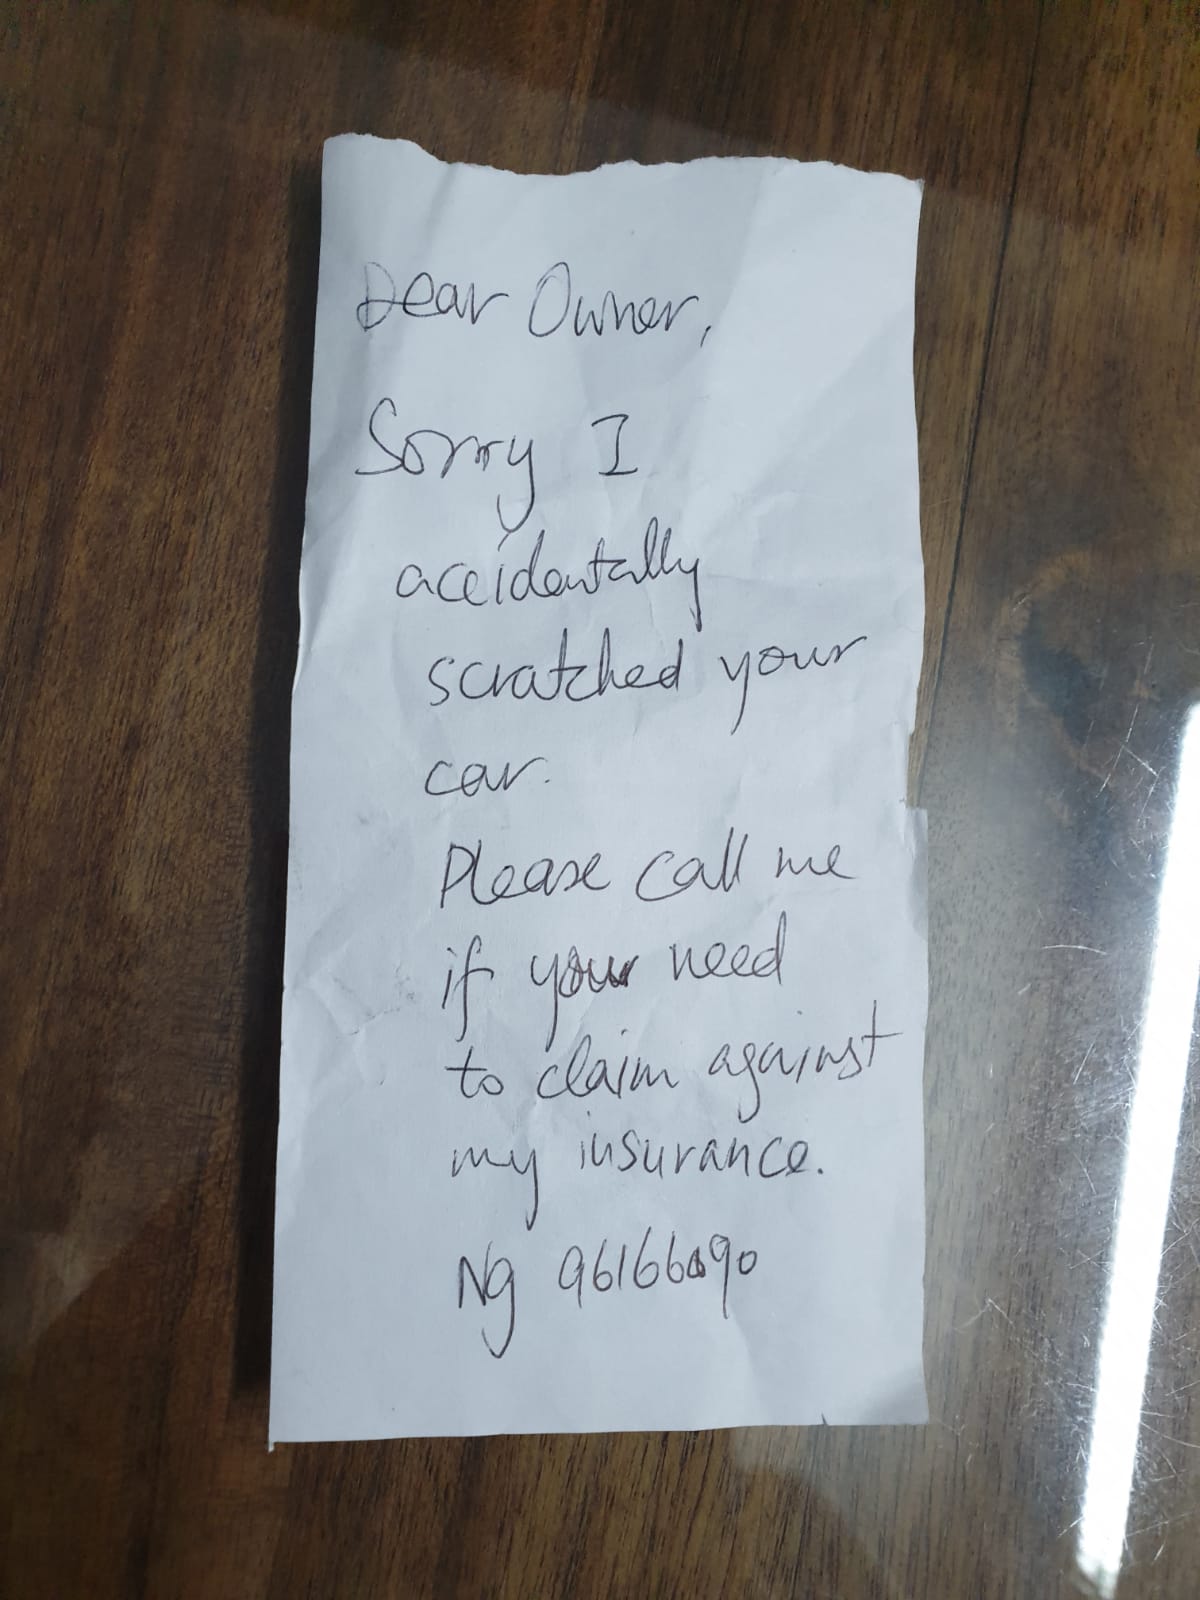 Dear Owner,
Sorry I
accidentally
scratched your
car.
Please call me
if your need
to claim against
my insurance.
Ng 96166090